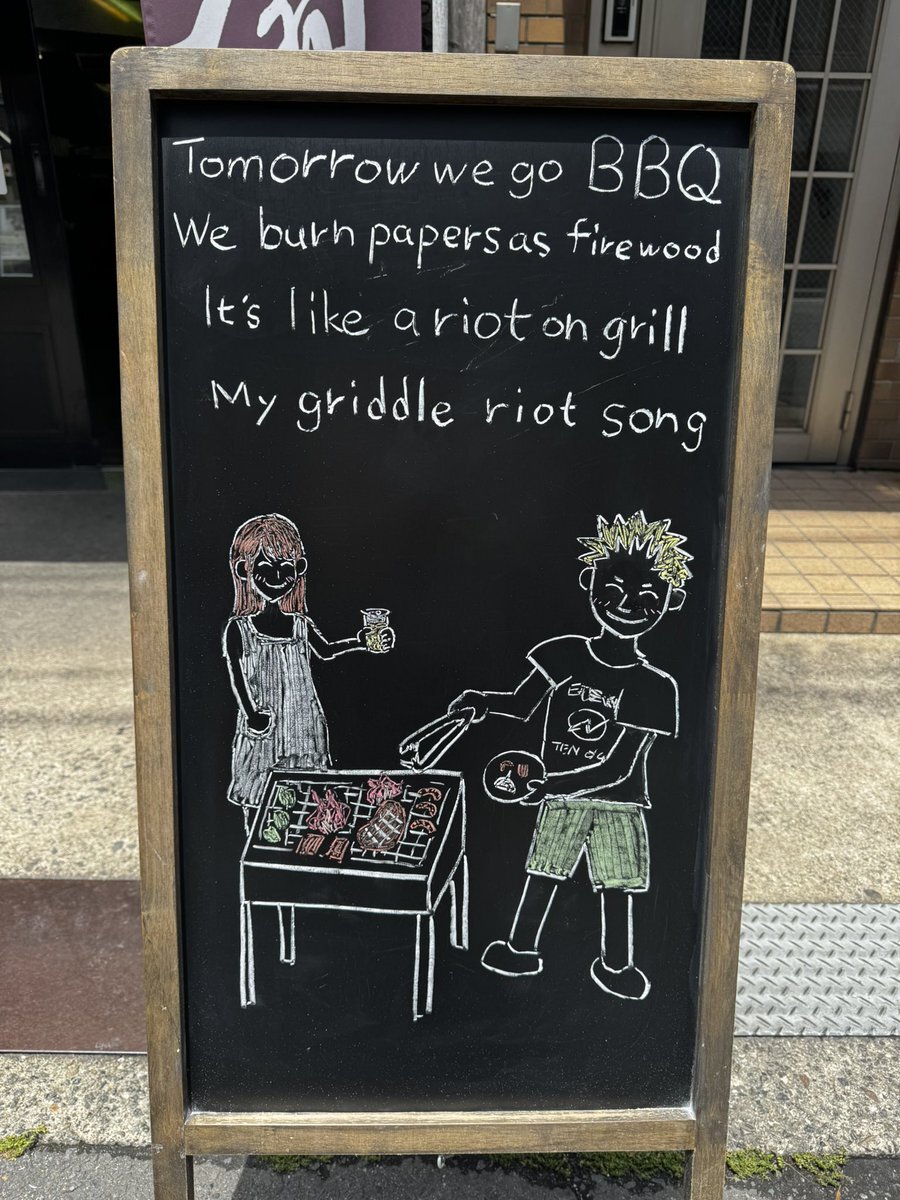 Tomorrow we go BBQ
We burn papers as firewood
It's like a riot on grill
My griddle riot song
TEN